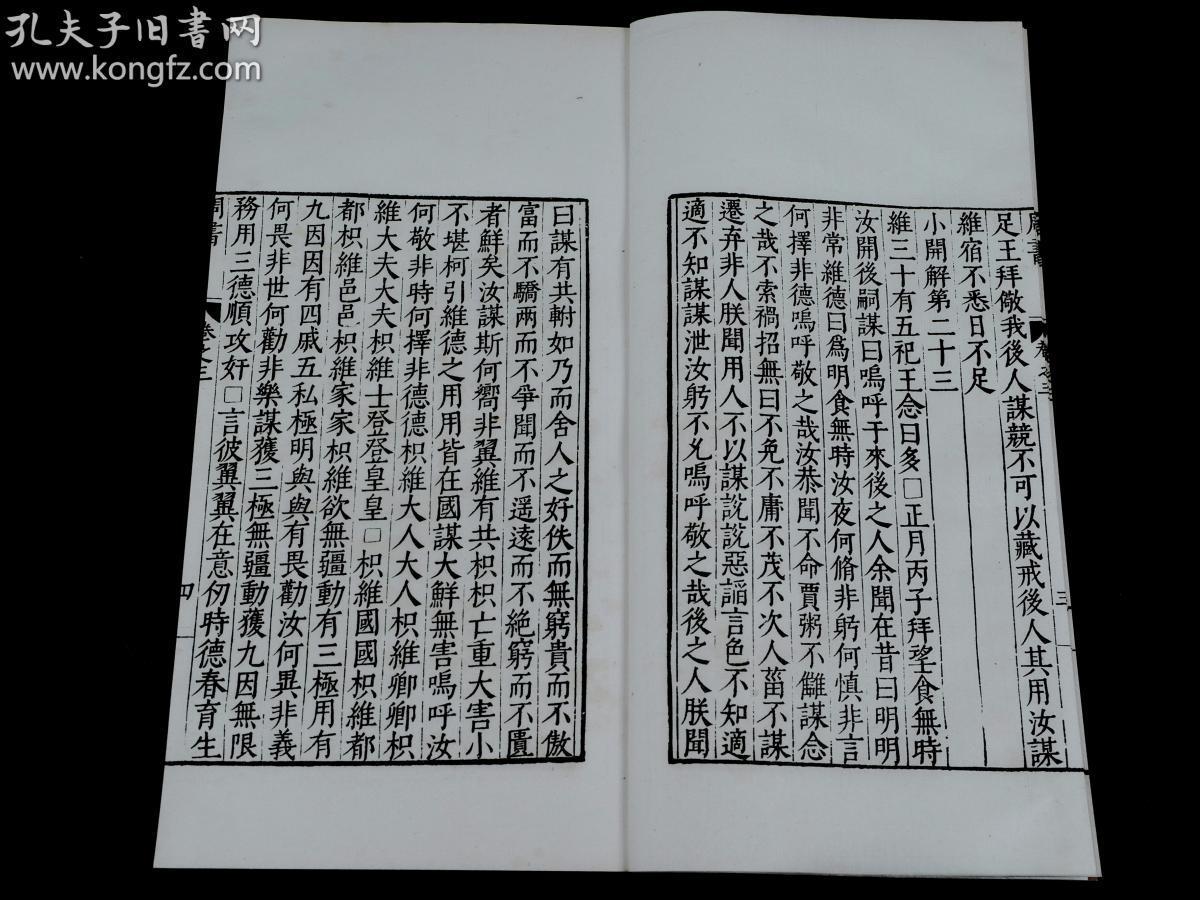 孔夫子旧书网
www.kongfz.com
足王拜儆我後人謀競不可以藏戒後人其用汝謀
維宿不悉日不足
小開解第二十三
維三十有五祀王念曰多□正月丙子拜望食無時
汝開後嗣謀曰嗚呼于來後之人余聞在昔曰明明
非常維德曰爲明食無時汝夜何脩非躬何慎非言
何擇非德嗚呼敬之哉汝恭聞不命賈粥不讎謀念
之哉不索禍招無曰不免不庸不茂不次人菑不謀
遷弃非人朕聞用人不以謀説説惡謟言色不知適
適不知謀謀泄汝躬不允嗚呼敬之哉後之人朕聞
卷之三
三
曰謀有共軵如乃而舍人之好佚而無窮貴而不傲
富而不驕兩而不爭聞而不遥遠而不絶窮而不匱
者鮮矣汝謀斯何嚮非翼維有共枳枳亡重大害小
不堪柯引維德之用用皆在國謀大鮮無害嗚呼汝
何敬非時何擇非德德枳維大人大人枳維卿卿枳
維大夫大夫枳維士登登皇皇□枳維國國枳維都
都枳維邑邑枳維家家枳維欲無疆動有三極用有
九因因有四戚五私極明與與有畏勸汝何異非義
何畏非世何勸非樂謀獲三極無疆動獲九因無限
務用三德順攻奸□言彼翼翼在意仞時德春育生
周書
卷之三
四